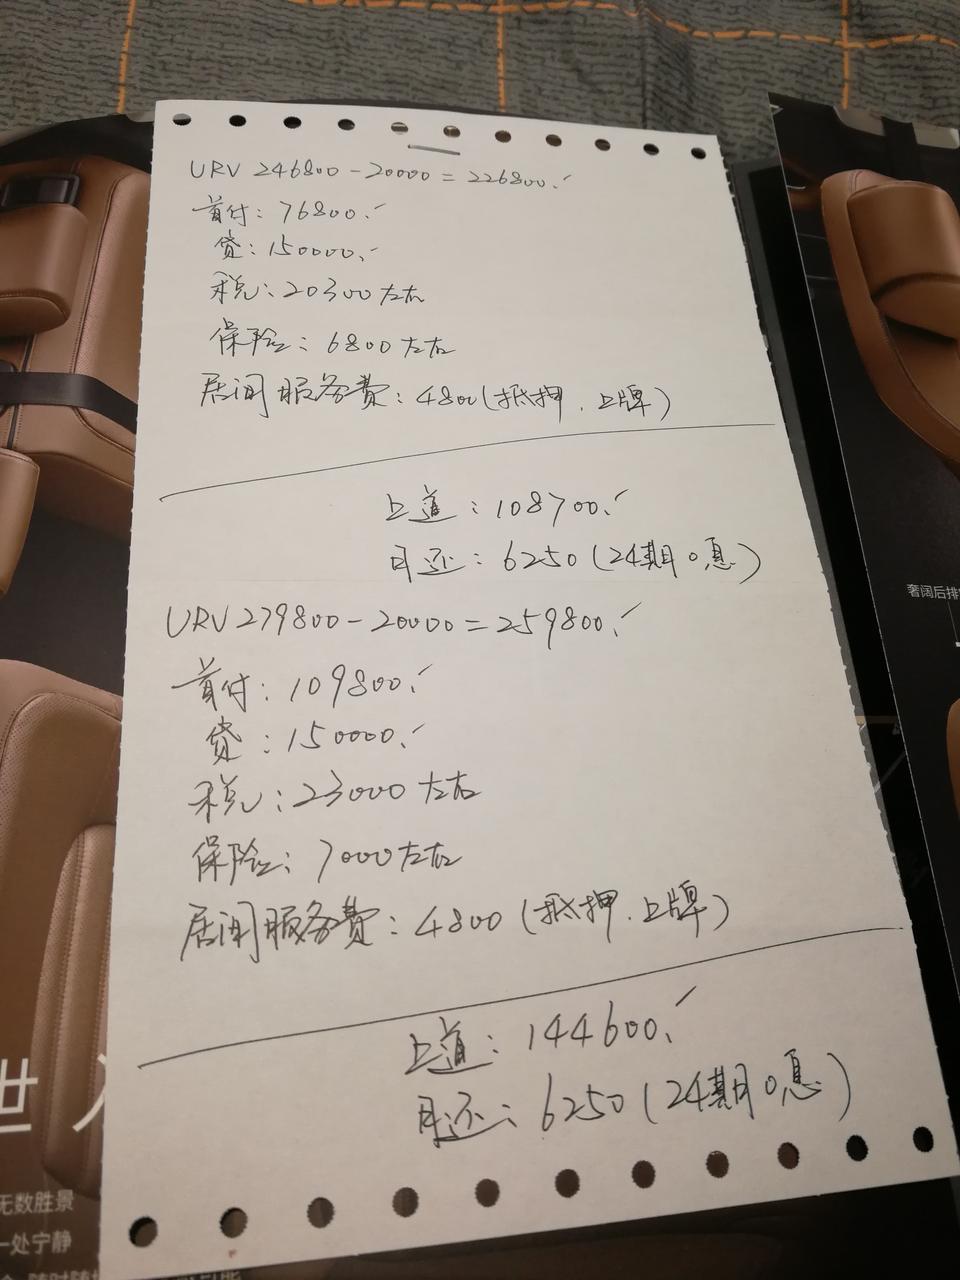 URV 246800-20000=226800.
首付: 76800.
贷: 150000.
税: 20300左右
保险: 6800左右
居间服务费: 4800(抵押.上牌)
上道: 108700.
月还: 6250(24期0息)
URV 279800-20000=259800.
首付: 109800.
贷: 150000.
税: 23000左右
保险: 7000左右
居间服务费: 4800(抵押.上牌)
上道: 144600.
月还: 6250(24期0息)
奢阔后排
世
无数胜景
一处宁静